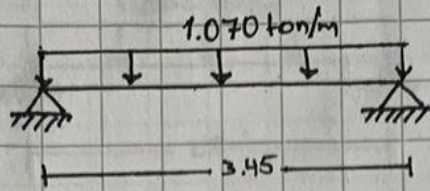 1.070 ton/m
3.45